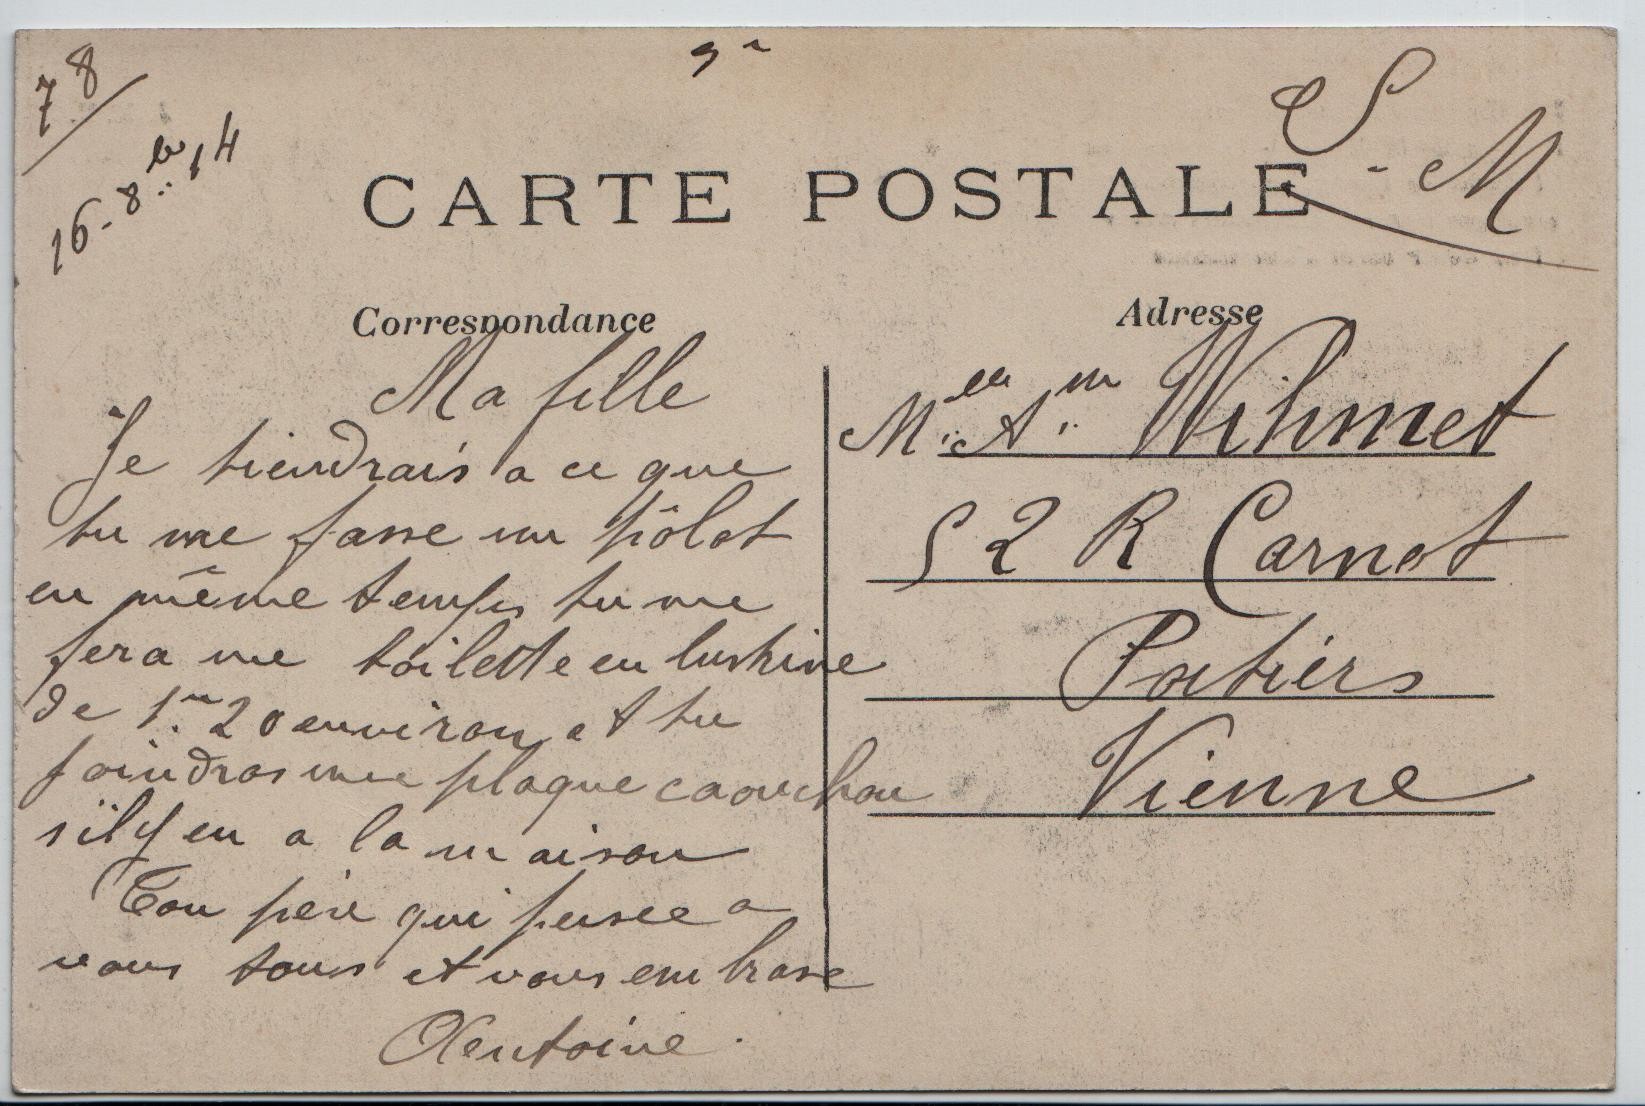 78
16-8bre 14
S-M
CARTE POSTALE
Correspondance
Ma fille
Je tiendrais a ce que
tu me fasse un pôlot
en même temps tu me
fera une toilette en lustrine
de 1m 20 environ et tu
joindras une plaque caouchou
s'il y en a la maison
Ton père qui pense a
vous tous et vous embrase
Antoine.
Adresse
Wihmet
52 R Carnot
Poitiers
Vienne